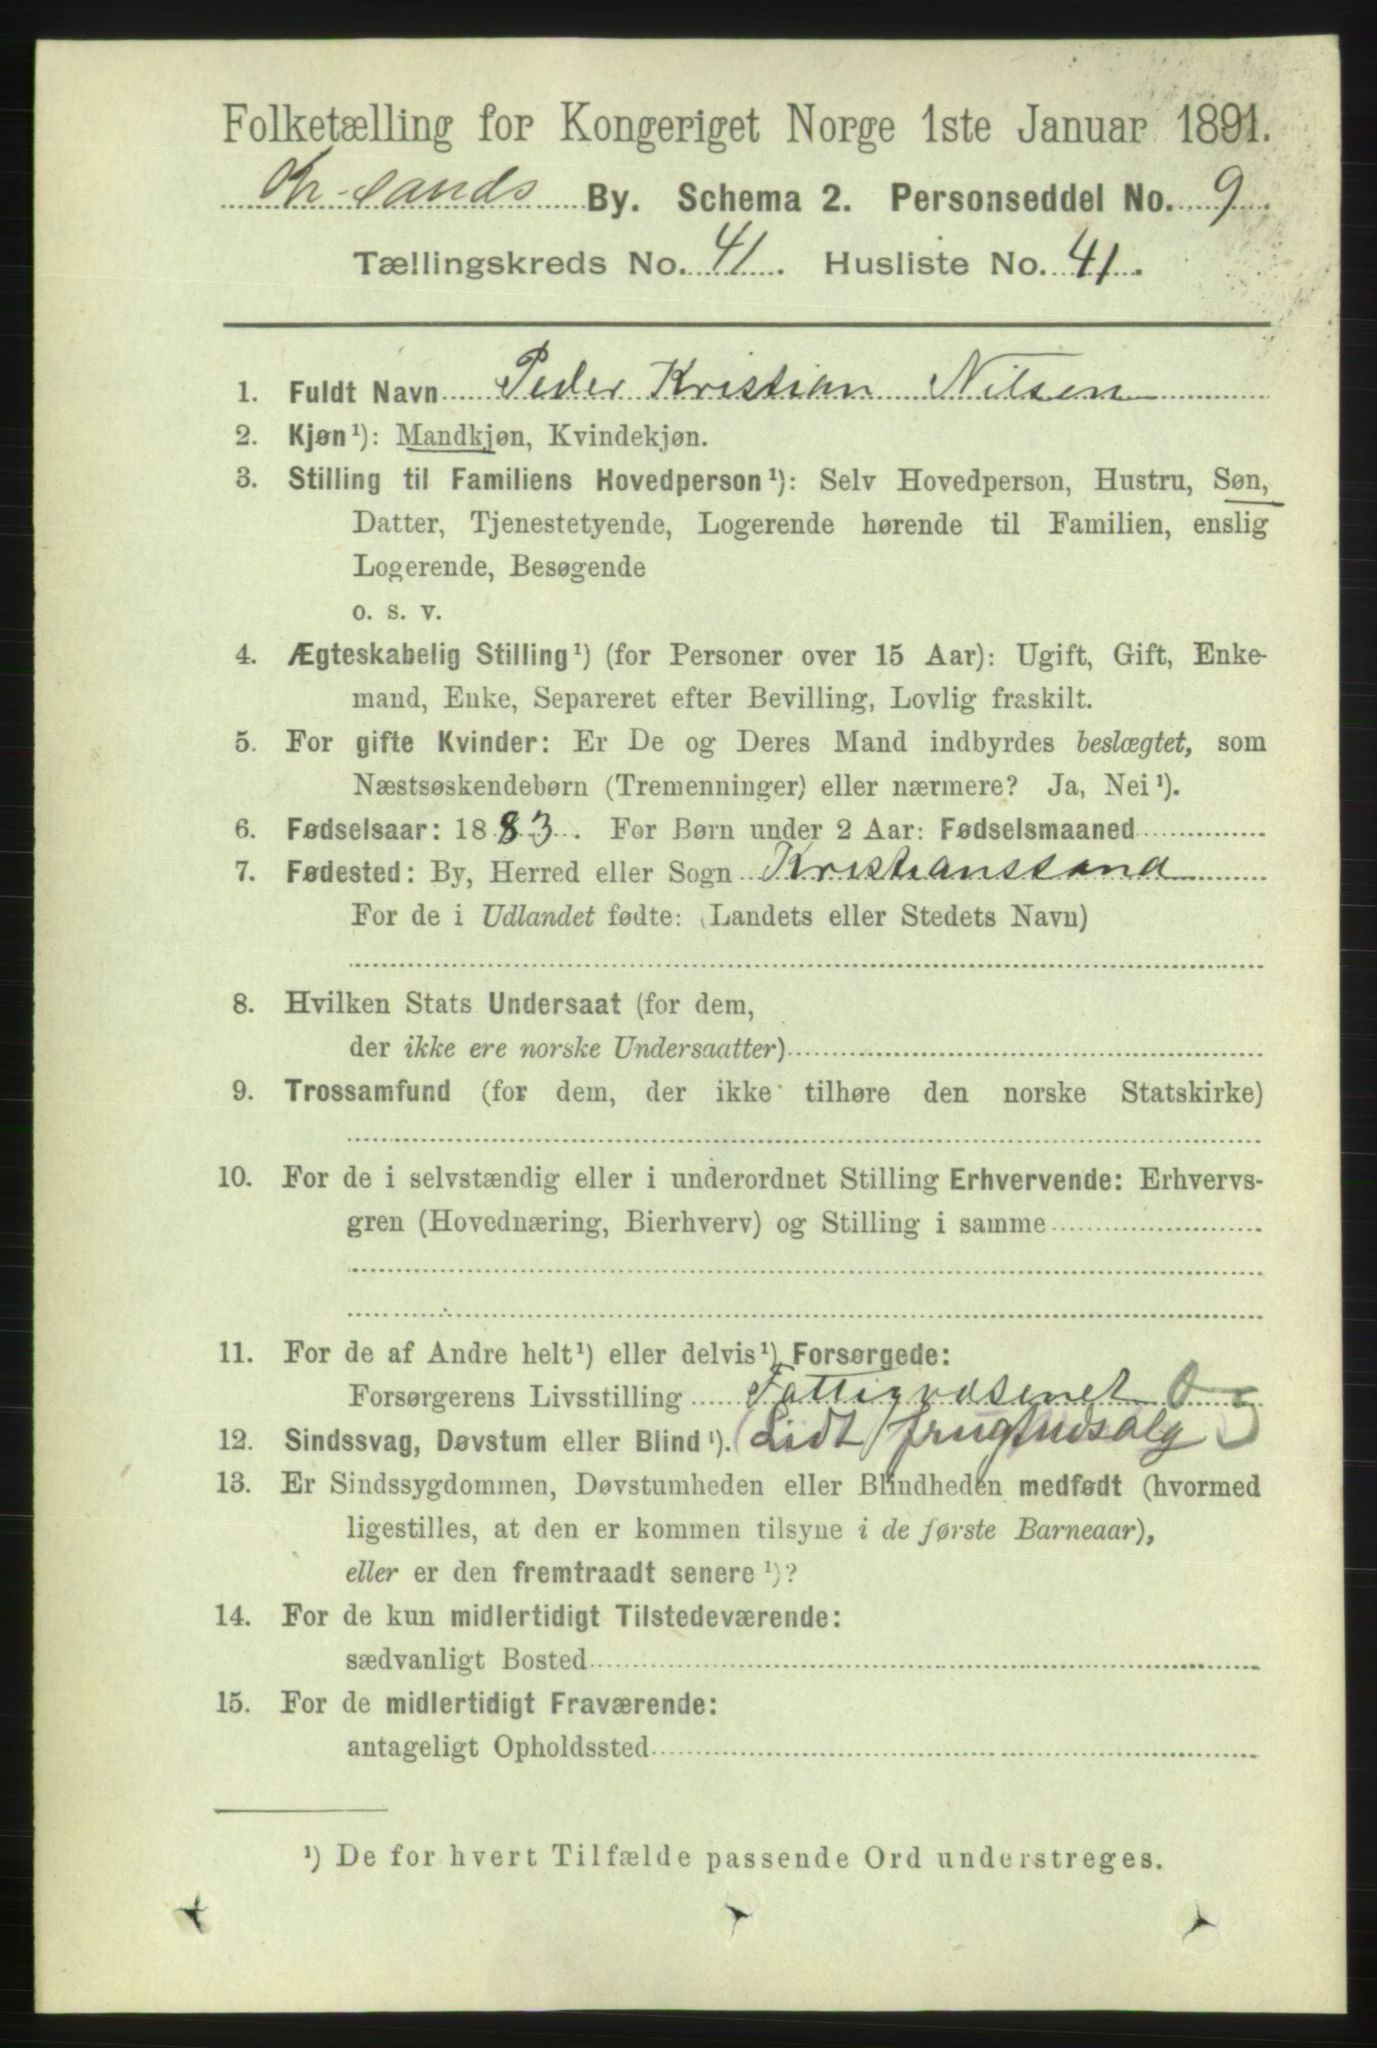 Folketælling for Kongeriget Norge 1ste Januar 1891.
Chr.sands By. Schema 2. Personseddel No. 9.
Tællingskreds No. 41. Husliste No. 41.
1. Fuldt Navn Peder Kristian Nilsen
2. Kjøn¹): Mandkjøn, Kvindekjøn.
3. Stilling til Familiens Hovedperson¹): Selv Hovedperson, Hustru, Søn,
Datter, Tjenestetyende, Logerende hørende til Familien, enslig
Logerende, Besøgende
o. s. v.
4. Ægteskabelig Stilling¹) (for Personer over 15 Aar): Ugift, Gift, Enke-
mand, Enke, Separeret efter Bevilling, Lovlig fraskilt.
5. For gifte Kvinder: Er De og Deres Mand indbyrdes beslægtet, som
Næstsøskendebørn (Tremenninger) eller nærmere? Ja, Nei¹).
6. Fødselsaar: 1883. For Børn under 2 Aar: Fødselsmaaned
7. Fødested: By, Herred eller Sogn Kristianssand
For de i Udlandet fødte: (Landets eller Stedets Navn)
8. Hvilken Stats Undersaat (for dem,
der ikke ere norske Undersaatter)
9. Trossamfund (for dem, der ikke tilhøre den norske Statskirke)
10. For de i selvstændig eller i underordnet Stilling Erhvervende: Erhvervs-
gren (Hovednæring, Bierhverv) og Stilling i samme
11. For de af Andre helt¹) eller delvis¹) Forsørgede:
Forsørgerens Livsstilling Fattigvæsenet
12. Sindssvag, Døvstum eller Blind¹). (Lidt frugtudsalg
13. Er Sindssygdommen, Døvstumheden eller Blindheden medfødt (hvormed
ligestilles, at den er kommen tilsyne i de første Barneaar),
eller er den fremtraadt senere¹)?
14. For de kun midlertidigt Tilstedeværende:
sædvanligt Bosted
15. For de midlertidigt Fraværende:
antageligt Opholdssted
¹) De for hvert Tilfælde passende Ord understreges.